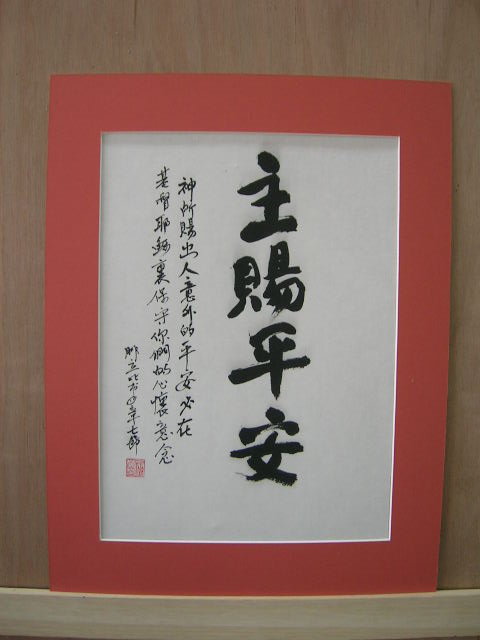 主賜平安
神所賜出人意外的平安必在
基督耶穌裏保守你們的心懷意念
腓立比书四章七節